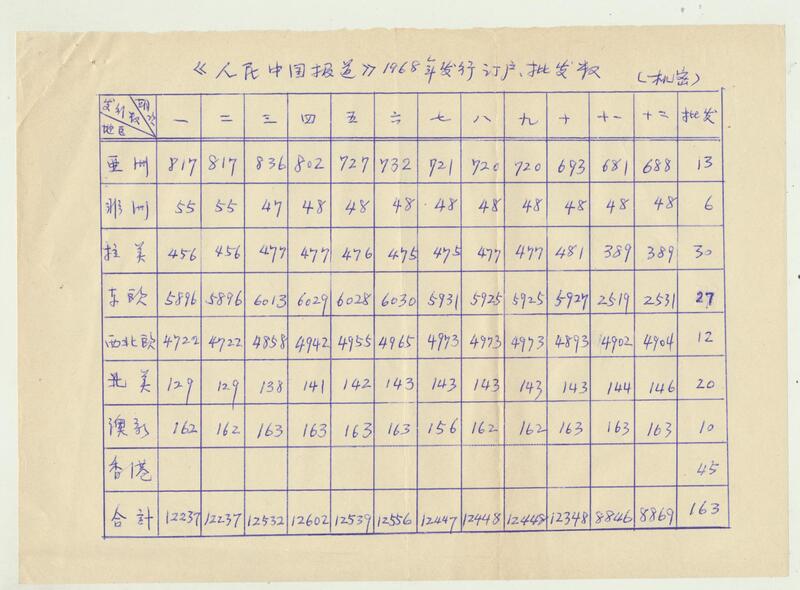 《人民中国报道》1968年发行订户、批发数 （机密）
发行数 期次 地区 一 二 三 四 五 六 七 八 九 十 十一 十二 批发
亚洲 817 817 836 802 727 732 721 720 720 693 681 688 13
非洲 55 55 47 48 48 48 48 48 48 48 48 48 6
拉美 456 456 477 477 476 475 475 477 477 481 389 389 30
东欧 5896 5896 6013 6029 6028 6030 5931 5925 5925 5927 2519 2531 27
西北欧 4722 4722 4858 4942 4955 4965 4973 4973 4973 4893 4902 4904 12
北美 129 129 138 141 142 143 143 143 143 143 144 146 20
澳新 162 162 163 163 163 163 156 162 162 163 163 163 10
香港 45
合计 12237 12237 12532 12602 12539 12556 12447 12448 12448 12348 8846 8869 163